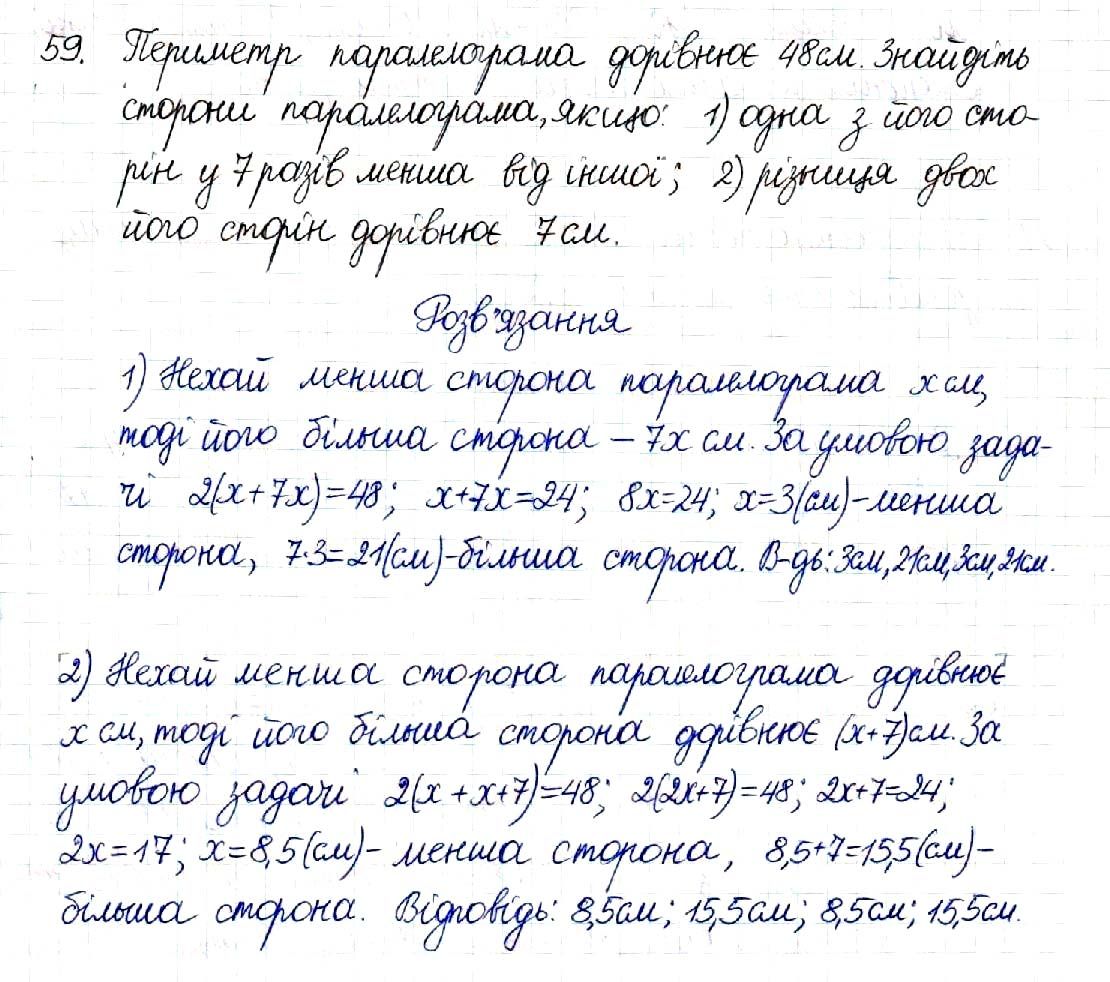 59. Периметр паралелограма дорівнює 48 см. Знайдіть
сторони паралелограма, якщо: 1) одна з його сто-
рін у 7 разів менша від іншої; 2) різниця двох
його сторін дорівнює 7 см.
Розв'язання
1) Нехай менша сторона паралелограма x см,
тоді його більша сторона – 7x см. За умовою зада-
чі 2(x+7x)=48; x+7x=24; 8x=24; x=3(см)-менша
сторона, 7·3=21(см)-більша сторона. В-дь: 3см, 21см, 3см, 21см.
2) Нехай менша сторона паралелограма дорівнює
x см, тоді його більша сторона дорівнює (x+7)см. За
умовою задачі 2(x+x+7)=48; 2(2x+7)=48; 2x+7=24;
2x=17; x=8,5(см)- менша сторона, 8,5+7=15,5(см)-
більша сторона. Відповідь: 8,5см; 15,5см; 8,5см; 15,5см.